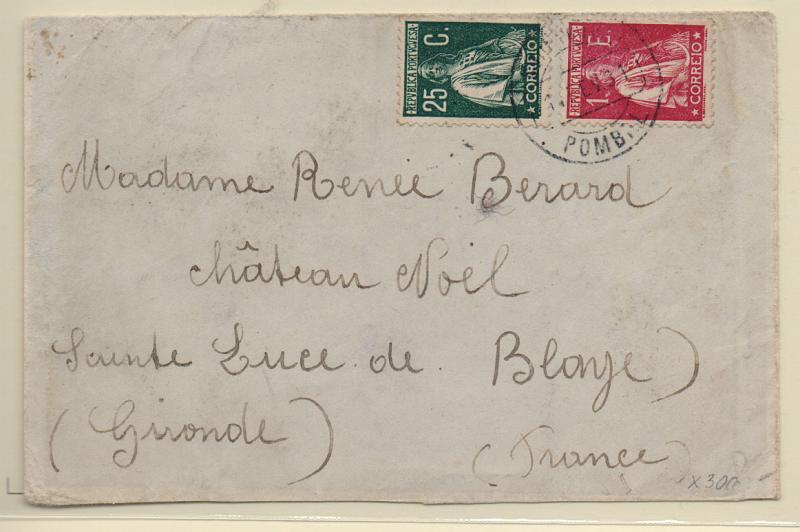 REPUBLICA PORTUGUESA
25 C.
CORREIO
REPUBLICA PORTUGUESA
1 E.
CORREIO
POMBAL
Madame Renée Berard
Château Noël
Sainte Luce de Blaye)
(Gironde)
(France)
x300